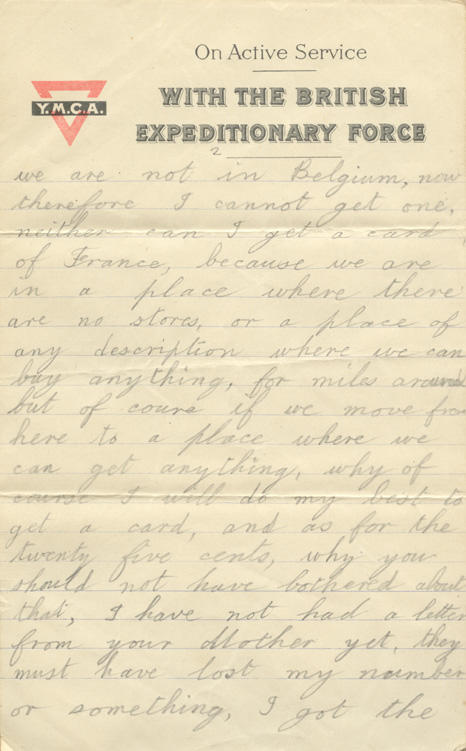 On Active Service
WITH THE BRITISH
Y.M.C.A.
EXPEDITIONARY FORCE
2
we are not in Belgium, now
therefore I cannot get one,
neither can I get a card
of France, because we are
in a place where there
are no stores, or a place of
any description where we can
buy anything, for miles around
but of coure if we move from
here to a place where we
can get anything, why of
course I will do my best to
get a card, and as for the
twenty five cents, why you
should not have bothered about
that, I have not had a letter
from your Mother yet, they
must have lost my number
or something, I got the